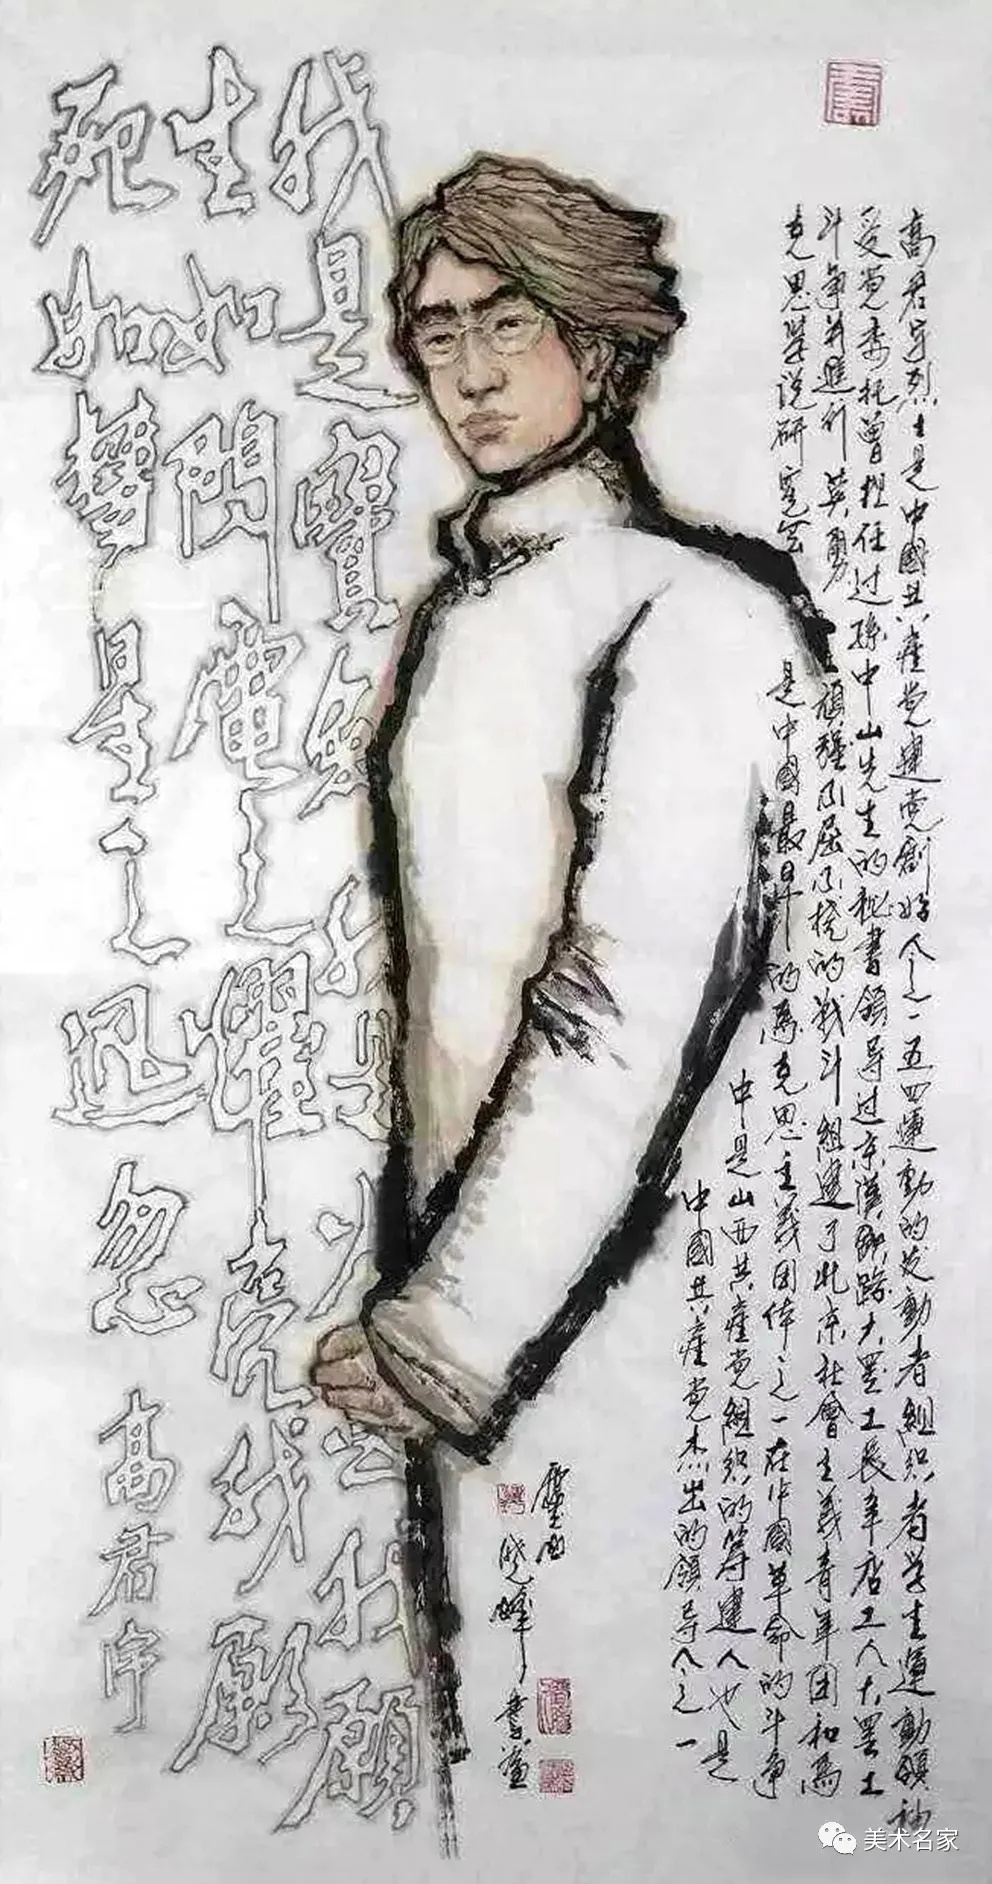 高君宇烈士是中國共産党建党創始人之一五四運動的发動者組织者学生運動領袖
受党委托曾担任过孫中山先生的秘書領导过京漢鉄路大罢工長辛店工人大罢工
斗争并進行英勇頑强不屈不挠的战斗組建了北京社會主義青年团和馬
克思学说研究会是中國最早的馬克思主義团体之一在中國革命的斗争
中是山西共産党組织的筹建人也是
中國共産党杰出的領导人之一
我是寶劍我是火花我願
生如閃電之耀亮我願
死如彗星之迅忽
高君宇
曉峰書畫
美术名家